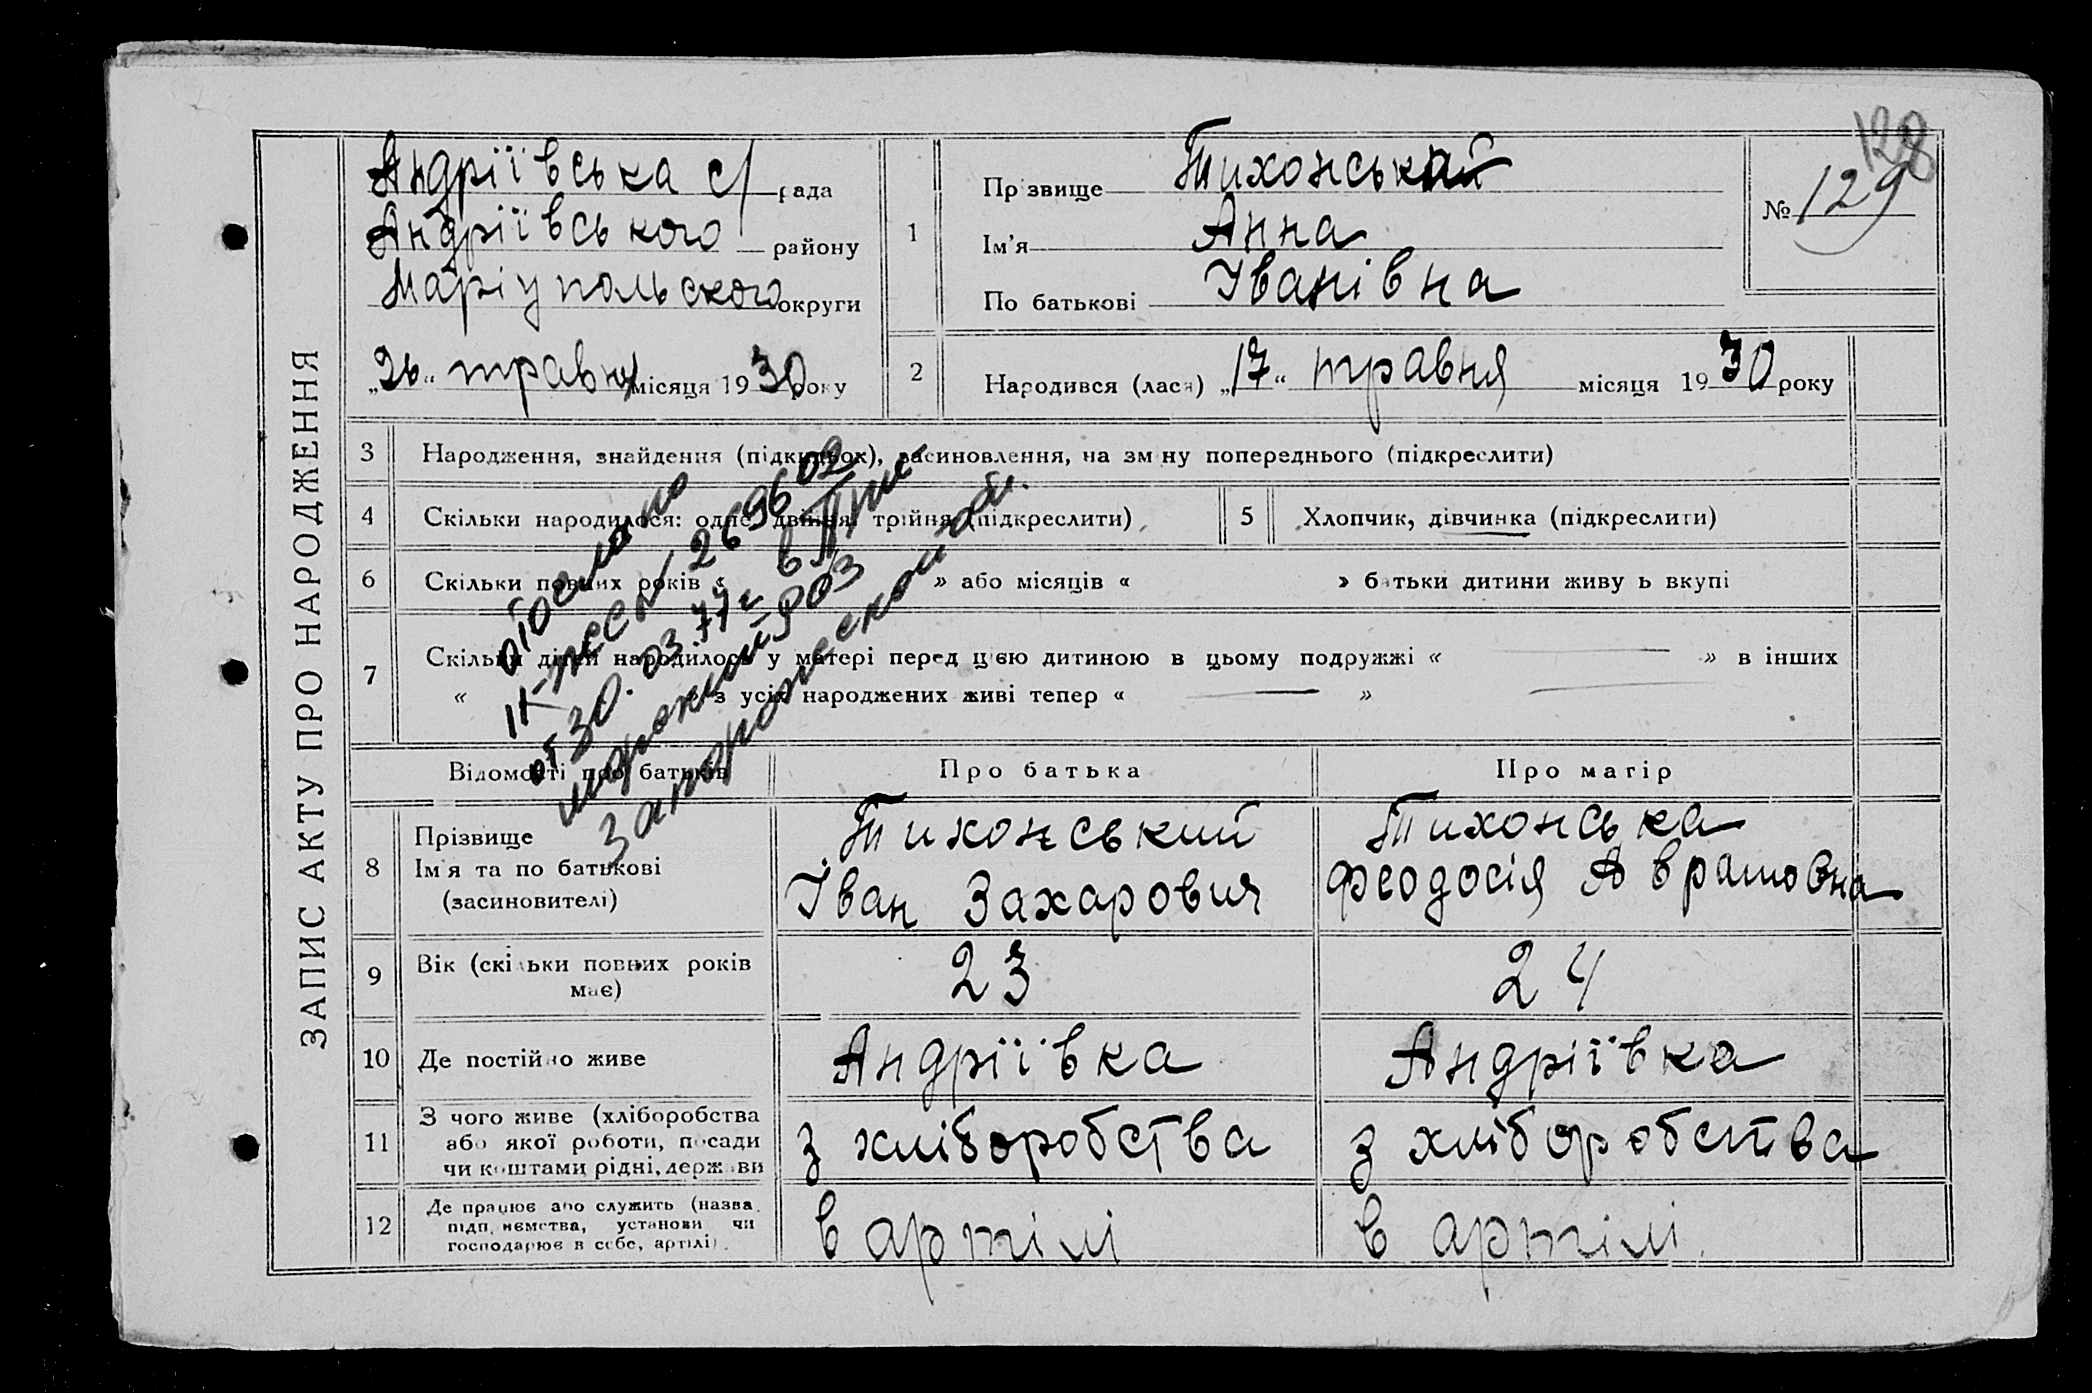 128
ЗАПИС АКТУ ПРО НАРОДЖЕННЯ
Андріївська с/рада
Андріївського району
Маріупольского округи
„26“ травня місяця 1930 року
1
Прізвище Тихонський
Ім'я Анна
По батькові Іванівна
№ 129
2
Народився (лася) „17“ травня місяця 1930 року
3 Народження, знайдення (підкидьок), засиновлення, на зміну попереднього (підкреслити)
4 Скільки народилося: одне, двійня, трійня (підкреслити)
5 Хлопчик, дівчинка (підкреслити)
6 Скільки повних років « » або місяців « » батьки дитини живуть вкупі
7 Скільки дітей народилось у матері перед цією дитиною в цьому подружжі « — » в інших
« » з усіх народжених живі тепер « — » —
отослано
269602
от 30.03.77г в При
903
Відомості про батьків
Про батька
Про матір
8 Прізвище
Ім'я та по батькові
(засиновителі)
Тихонський
Іван Захарович
Тихонська
Феодосія Аврамовна
9 Вік (скільки повних років
має)
23
24
10 Де постійно живе
Андріївка
Андріївка
11 З чого живе (хліборобства
або якої роботи, посади
чи коштами рідні, держави
з хліборобства
з хліборобства
12 Де працює або служить (назва
підприємства, установи чи
господарює в себе, артілі)
в артілі
в артілі